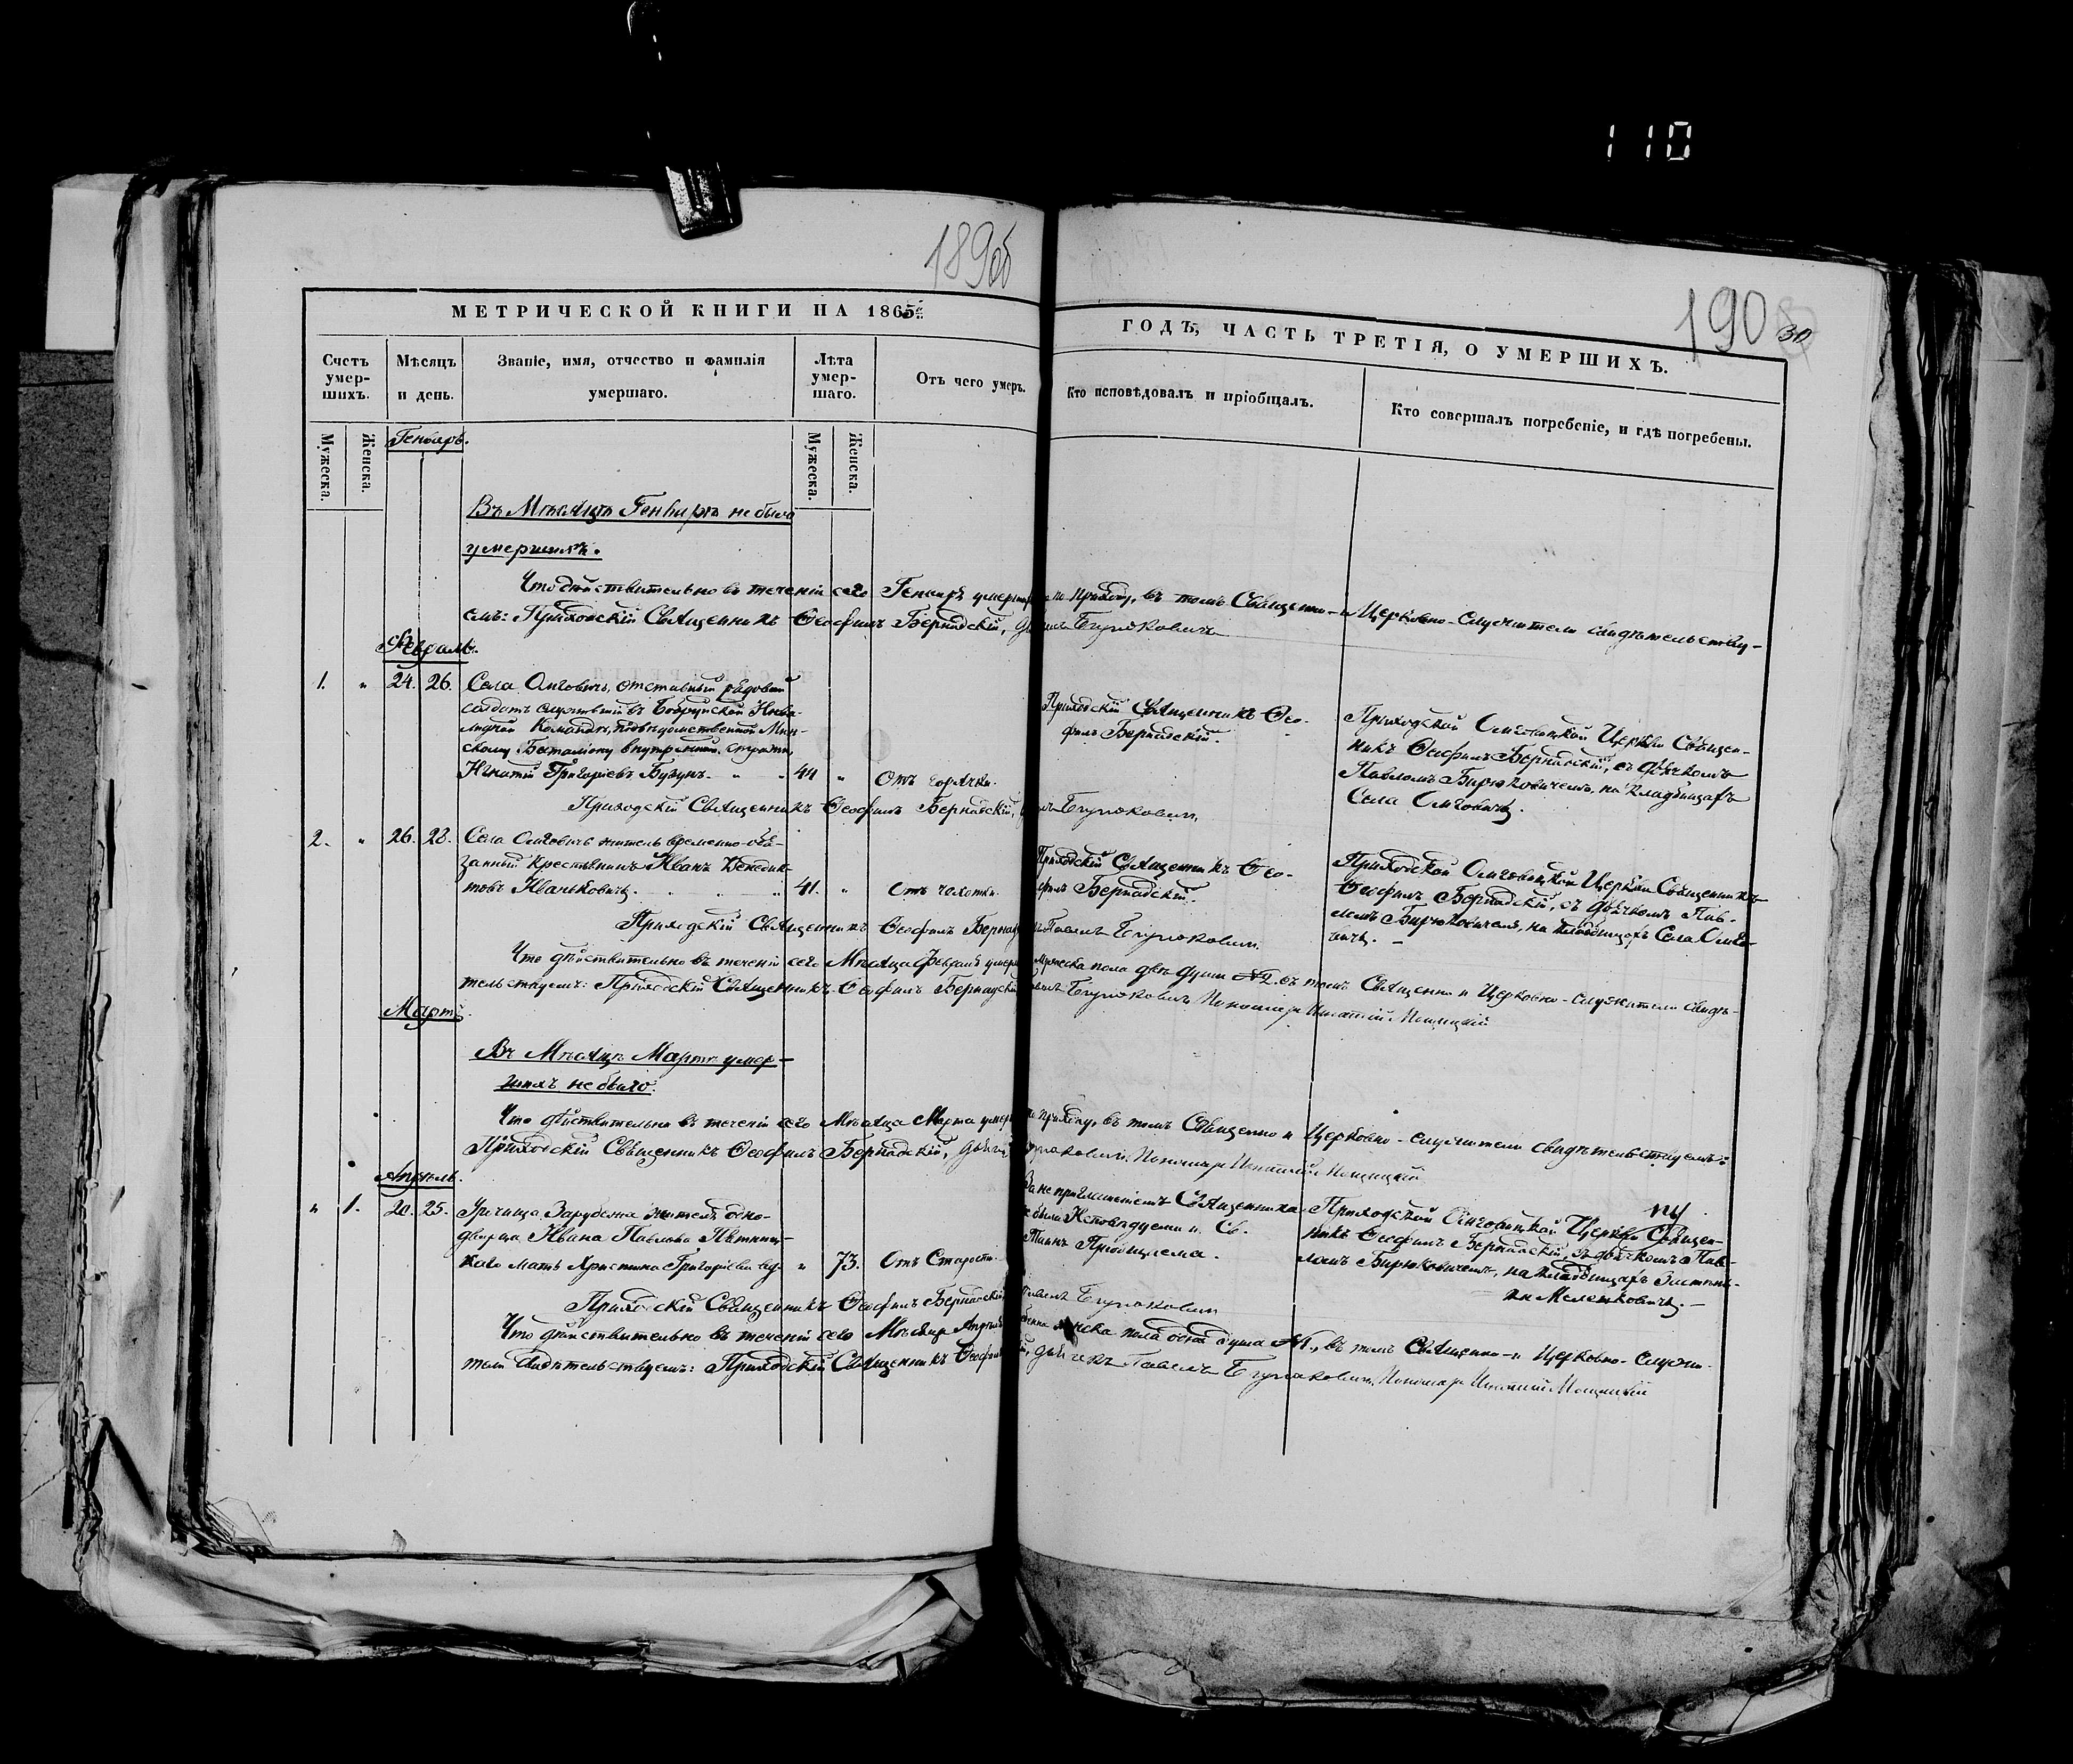 110
189об
190
30
МЕТРИЧЕСКОЙ КНИГИ НА 1865
ГОДЪ, ЧАСТЬ ТРЕТІЯ, О УМЕРШИХЪ.
Счетъ умер-шихъ.
Мѣсяцъ и день.
Званіе, имя, отчество и фамилія умершаго.
Лѣта умер-шаго.
Отъ чего умеръ.
Кто исповѣдовалъ и пріобщалъ.
Кто совершалъ погребеніе, и гдѣ погребены.
Мужеска.
Женска.
Мужеска.
Женска.
Генварь.
Въ Мѣсяцѣ Генварѣ не было
умершихъ.
Что дѣйствительно въ теченіи сего Генваря по приходу, въ томъ Священно- и Церковно-служители свидѣтельству-
емъ: Приходскій Священникъ Ѳеофилъ Бернадскій,
Февраль.
1. „ 24. 26. Села отставный рядовый
солдатъ служившій въ Бобруйской Инва-
лидной Командѣ, Мин-
скому Баталіону внутренней стражи,
Игнатій Григоріевъ Бузунъ 44 „ Отъ горячки.
Приходскій Священникъ Ѳео-
филъ Бернадскій.
Приходской Церкви Священ-
никъ Ѳеофилъ Бернадскій, съ дьячкомъ
Павломъ Бирюковичемъ, на кладбищахъ
Села
Приходскій Священникъ Ѳеофилъ Бернадскій,
2. „ 26. 28. Села житель временно-обя-
занный Крестьянинъ Иванъ Венедик-
товъ Иваньковичъ. 41. „ Отъ чахотки.
Приходскій Священникъ Ѳео-
филъ Бернадскій.
Приходской Церкви Священникъ
Ѳеофилъ Бернадскій, съ дьячкомъ Пав-
ломъ Бирюковичемъ, на кладбищахъ Села
Приходскій Священникъ Ѳеофилъ
Что дѣйствительно въ теченіи сего Мѣсяца Февраля мужеска пола двѣ души №2, въ томъ Священно и Церковно-служители свидѣ-
тельствуемъ: Приходскій Священникъ Ѳеофилъ Бернадскій Пономарь Игнатій
Мартъ.
Въ Мѣсяцѣ Мартѣ умер-
шихъ не было.
Что дѣйствительно въ теченіи сего Мѣсяца Марта по приходу, въ томъ Священно и Церковно-служители свидѣтельствуемъ:
Приходскій Священникъ Ѳеофилъ Бернадскій, Пономарь Игнатій
Апрѣль.
„ 1. 20. 25. Урочища Зарубежа жителя одно-
дворца Ивана Павлова
каго мать Христина Григоріева „ 73. Отъ Старости.
За не приглашеніемъ Священника
не была Исповѣдуема и Св.
Таинъ Пріобщаема.
Приходской Церкви Священ-
никъ Ѳеофилъ Бернадскій, съ дьячкомъ Пав-
ломъ Бирюковичемъ, на кладбищахъ
Приходскій Священникъ Ѳеофилъ Бернадскій
Что дѣйствительно въ теченіи сего Мѣсяца Апрѣля пола одна душа №1, въ томъ Священно- и Церковно-служи-
тели свидѣтельствуемъ: Приходскій Священникъ дьячекъ Павелъ Пономарь Игнатій